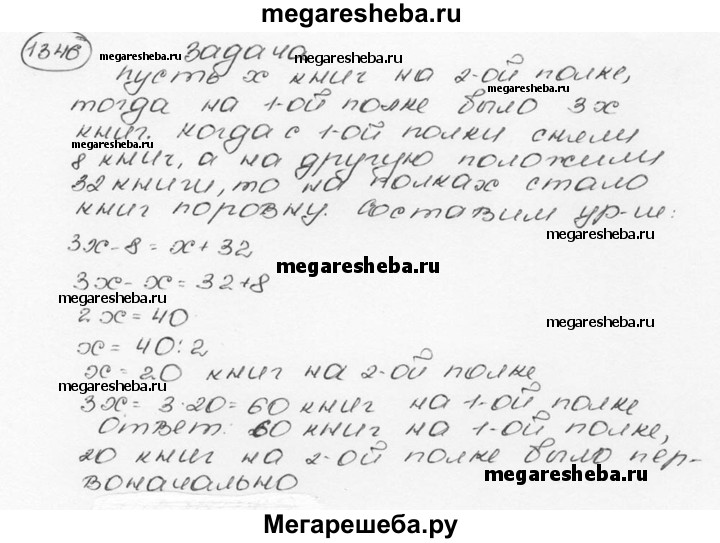 megaresheba.ru
1346 megaresheba.ru задача megaresheba.ru
пусть x книг на 2-ой полке,
тогда на 1-ой полке было 3x
книг. когда с 1-ой полки сняли
8 книг, а на другую положили
32 книги, то на полках стало
книг поровну. Составим ур-ие:
megaresheba.ru
3x-8=x+32
megaresheba.ru
3x-x=32+8
megaresheba.ru
2x=40
megaresheba.ru
x=40:2
x=20 книг на 2-ой полке
megaresheba.ru
3x=3·20=60 книг на 1-ой полке
Ответ: 60 книг на 1-ой полке,
20 книг на 2-ой полке было пер-
megaresheba.ru
воначально
Мегарешеба.ру